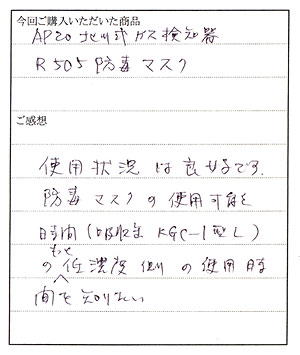 今回ご購入いただいた商品
AP20 北川式ガス検知器
R505防毒マスク
ご感想
使用状況は良好です.
防毒マスクの使用可能
時間(吸収缶 KGC-1型L)
の もっと低濃度側の使用時
間を知りたい